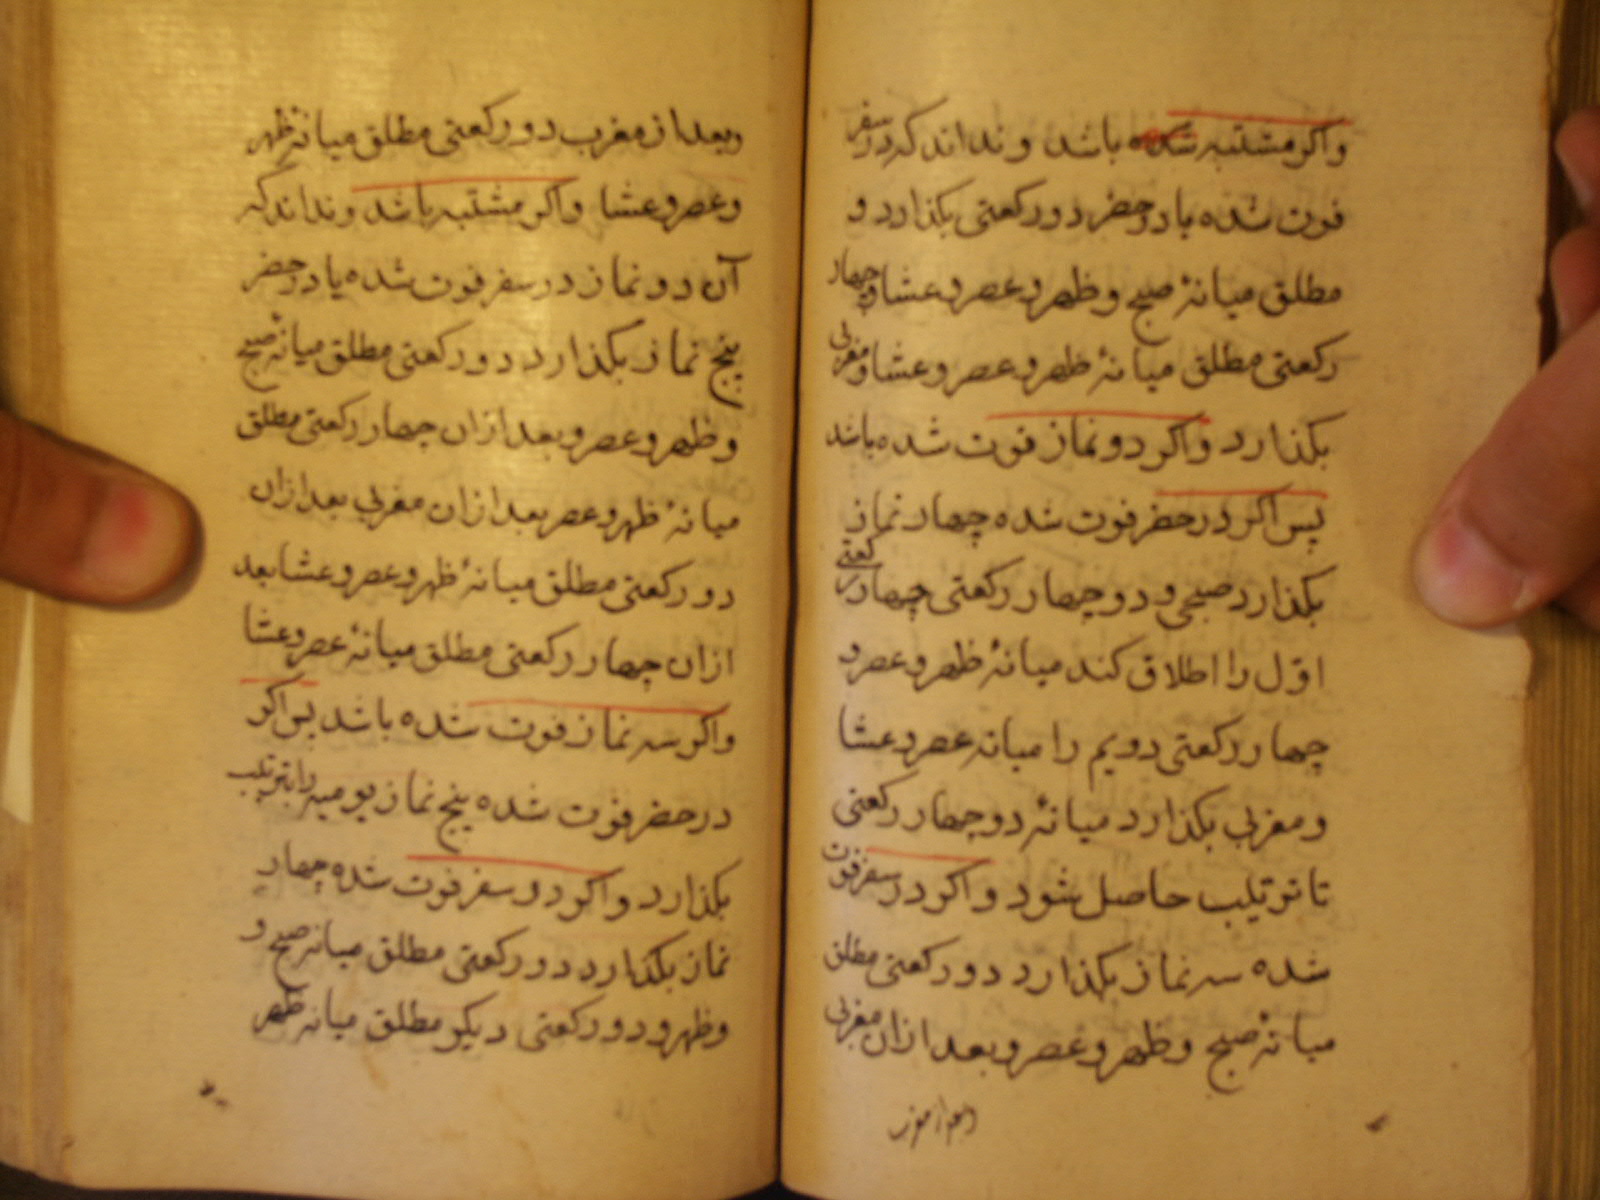 واکر مشتبه شده باشد و نداند که در سفر
فوت شده یا در حضر دو رکعتی بکذارد و
مطلق میانهٔ صبح و ظهر و عصر و عشا و چهار
رکعتی مطلق میانهٔ ظهر و عصر و عشا و مغربی
بکذارد واکر دو نماز فوت شده باشد
پس اکر در حضر فوت شده چهار نماز
بکذارد صبحی و دو چهار رکعتی چهار رکعتی
اوّل را اطلاق کند میانهٔ ظهر و عصر و
چهار رکعتی دویم را میانه عصر و عشا
و مغربی بکذارد میانهٔ دو چهار رکعتی
تا ترتیب حاصل شود واکر در سفر فوت
شده سه نماز بکذارد دو رکعتی مطلق
میانهٔ صبح و ظهر و عصر و بعد ازان مغربی
وبعد از مغرب
وبعد از مغرب دو رکعتی مطلق میانه ظهر
وعصر وعشا واکر مشتبه باشد و نداند که
آن دو نماز در سفر فوت شده یا در حضر
پنج نماز بکذارد دو رکعتی مطلق میانهٔ صبح
و ظهر و عصر و بعد ازان چهار رکعتی مطلق
میانهٔ ظهر و عصر بعد ازان مغربی بعد ازان
دو رکعتی مطلق میانهٔ ظهر و عصر و عشا بعد
ازان چهار رکعتی مطلق میانهٔ عصر و عشا
واکر سه نماز فوت شده باشد پس اکر
در حضر فوت شده پنج نماز یومیه را بترتیب
بکذارد واکر در سفر فوت شده چهار
نماز بکذارد دو رکعتی مطلق میانه صبح و
وظهر و دو رکعتی دیکر مطلق میانه ظهر